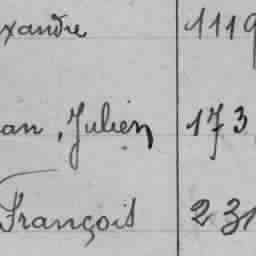 xandre 1119
an, Julien 173
François 231